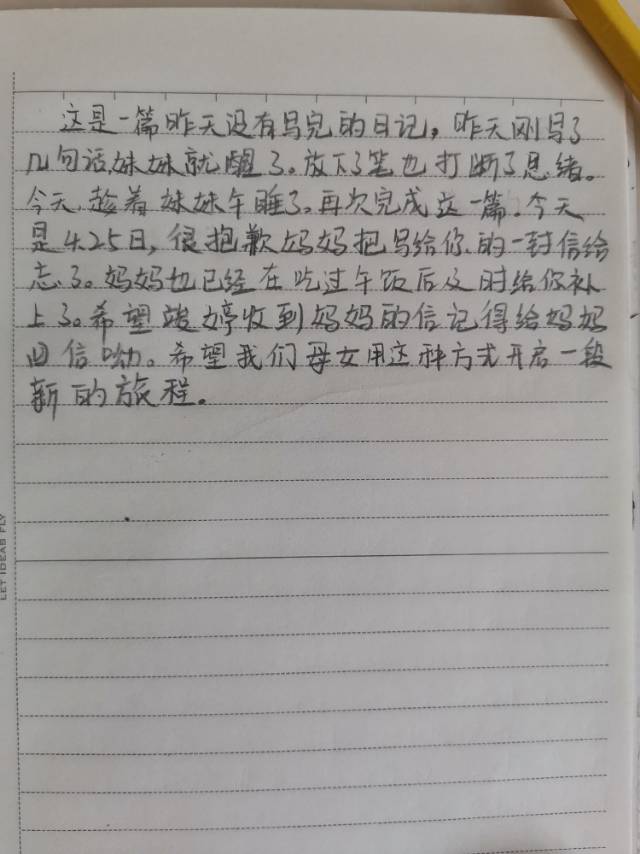 这是一篇昨天没有写完的日记，昨天刚写了
几句话,妹妹就醒了。放下了笔也打断了思绪。
今天,趁着妹妹午睡了。再次完成这一篇.今天
是4.25日,很抱歉妈妈把写给你的一封信给
忘了。妈妈也已经在吃过午饭后及时给你补
上了。希望婷收到妈妈的信记得给妈妈
回信呦。希望我们母女用这种方式开启一段
新的旅程。
LET IDEAS FLY